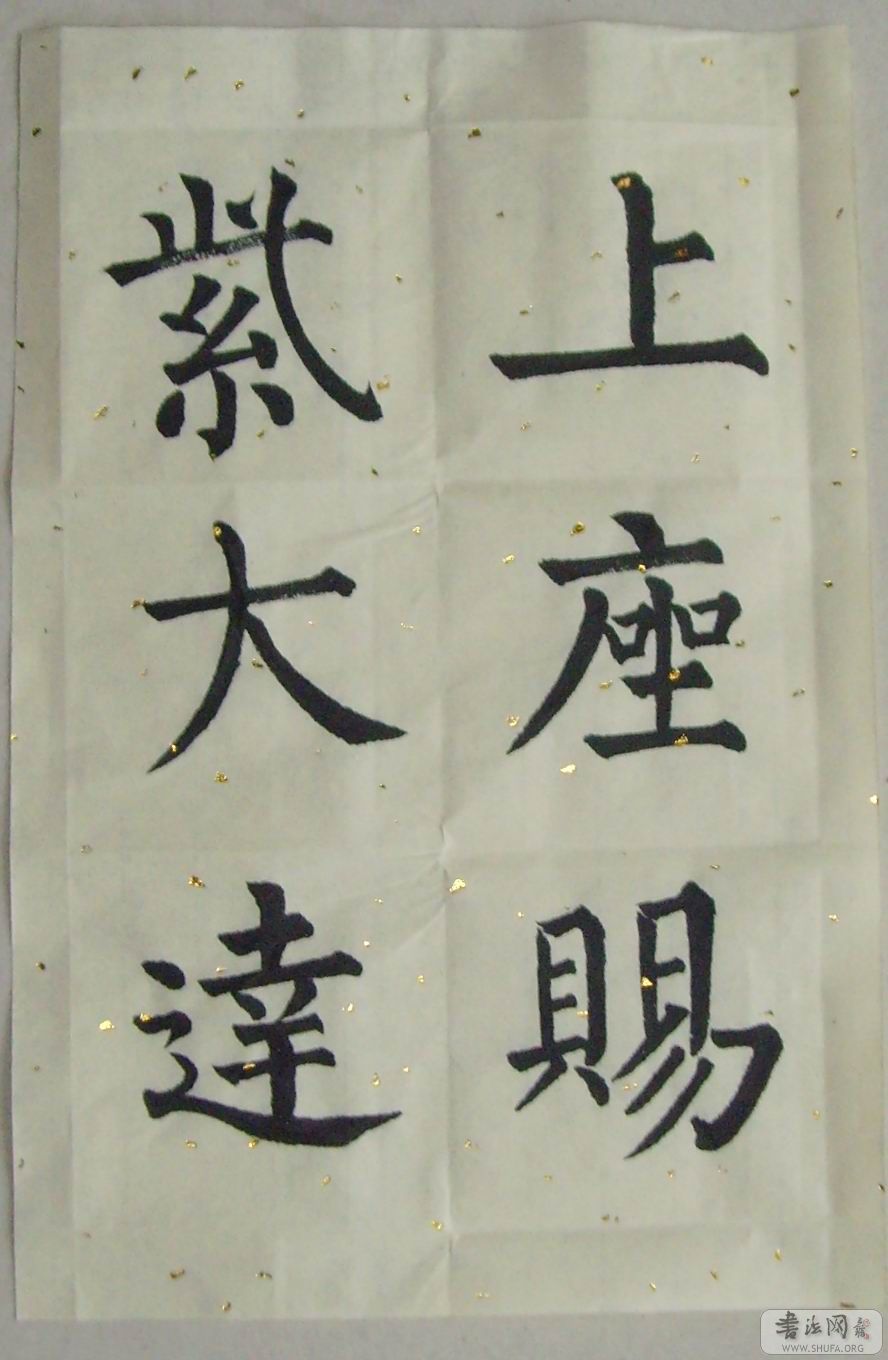 上座賜
紫大達
書法网
WWW.SHUFA.ORG